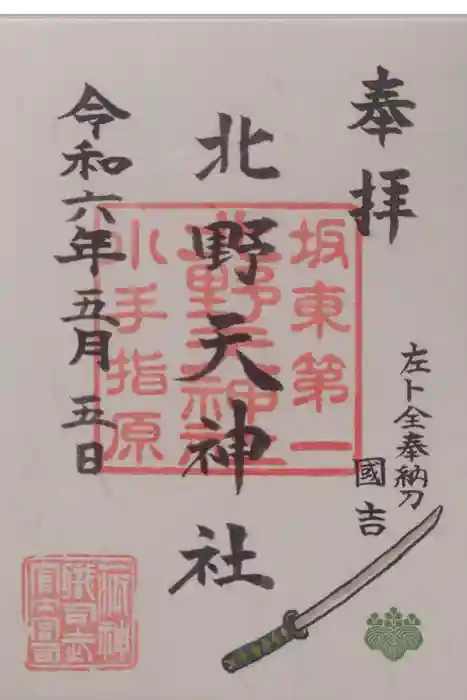 奉拝
左卜全奉納刀
國吉
坂東第一
北野天神社
小手指原
令和六年五月五日